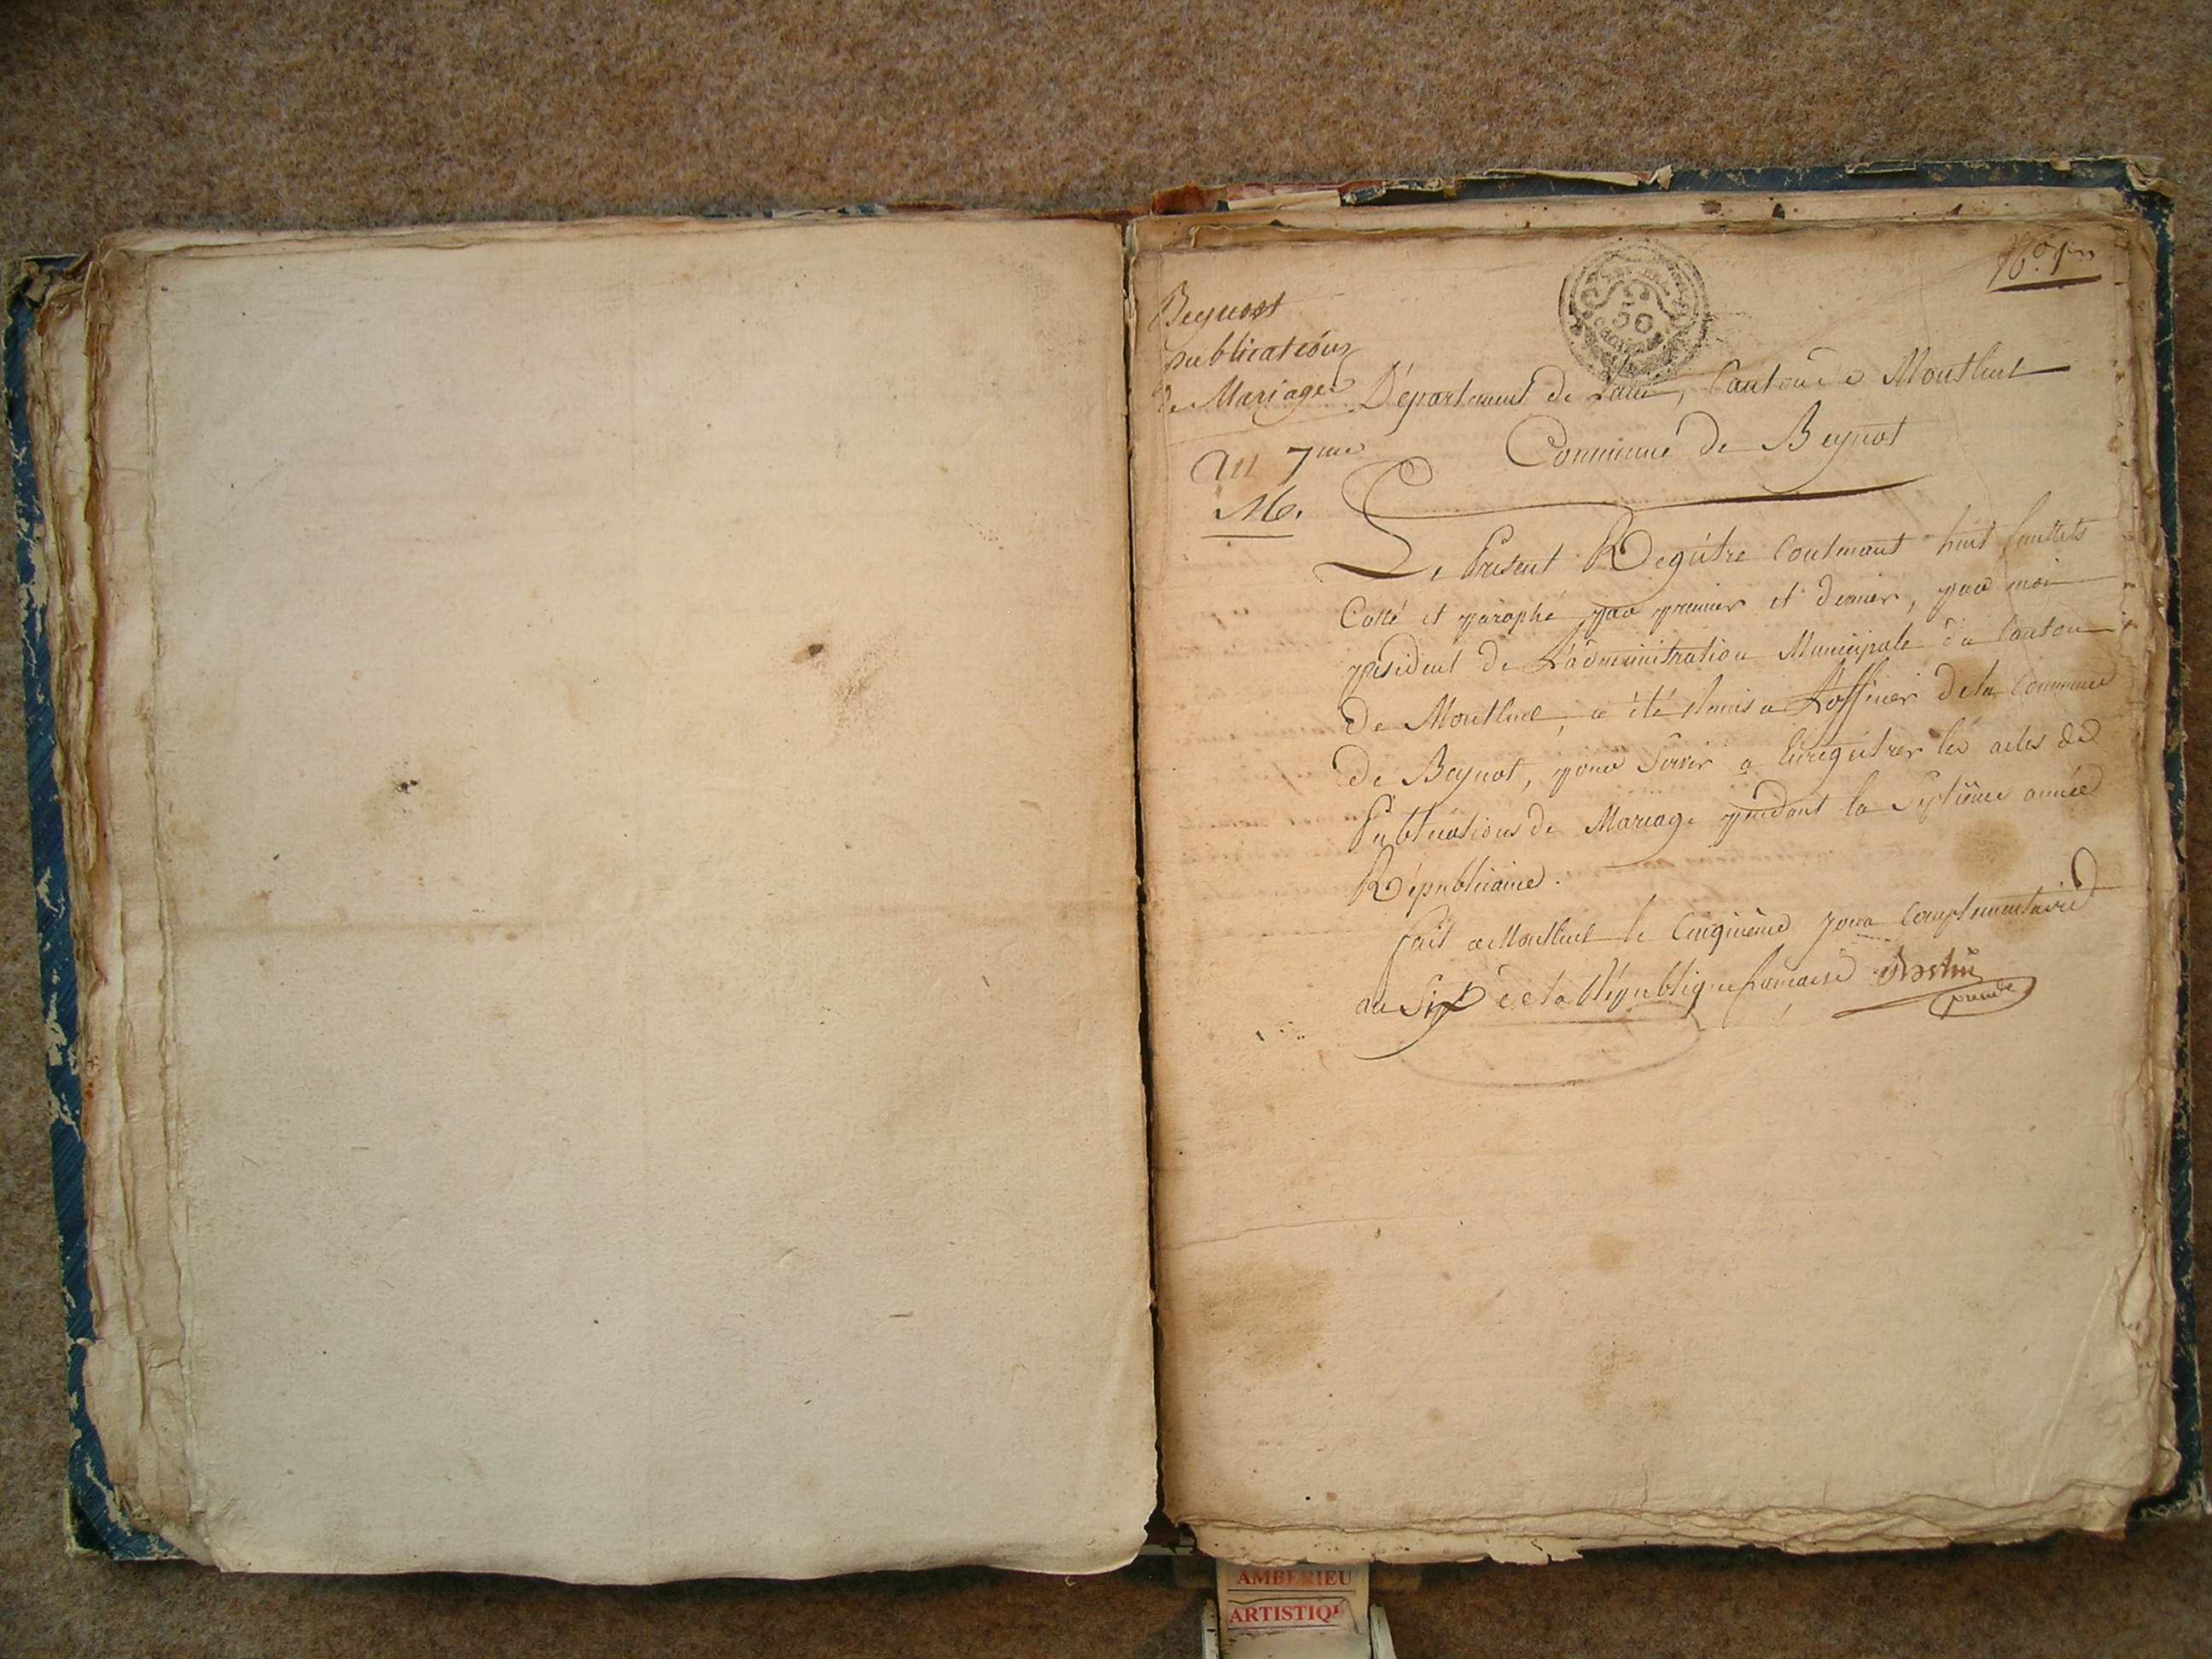 Beynost
publications
de Mariages
an 7me
M.
50
Département de Lain, Canton de Montluel
Commune de Beynot
Le Présent Regitre Contenant huit feuillets
Cotté et paraphé par premier et dernier, par moi
président de L'administration Municipale du Canton
de Montluel, a été Remis a L'officier de la Commune
de Beynot, pour Servir a Enregitrer les actes de
Publications de Mariage pendant la Septieme année
Républicaine.
fait a Montluel le Cinquieme jour Complementaire
an Six de la République francaise
AMBERIEU
ARTISTIQ